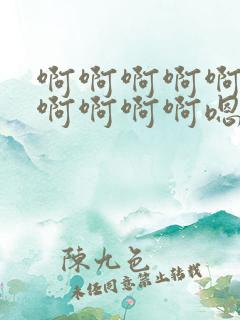 啊啊啊啊啊
啊啊啊啊嗯
陳九色
未经同意禁止转载